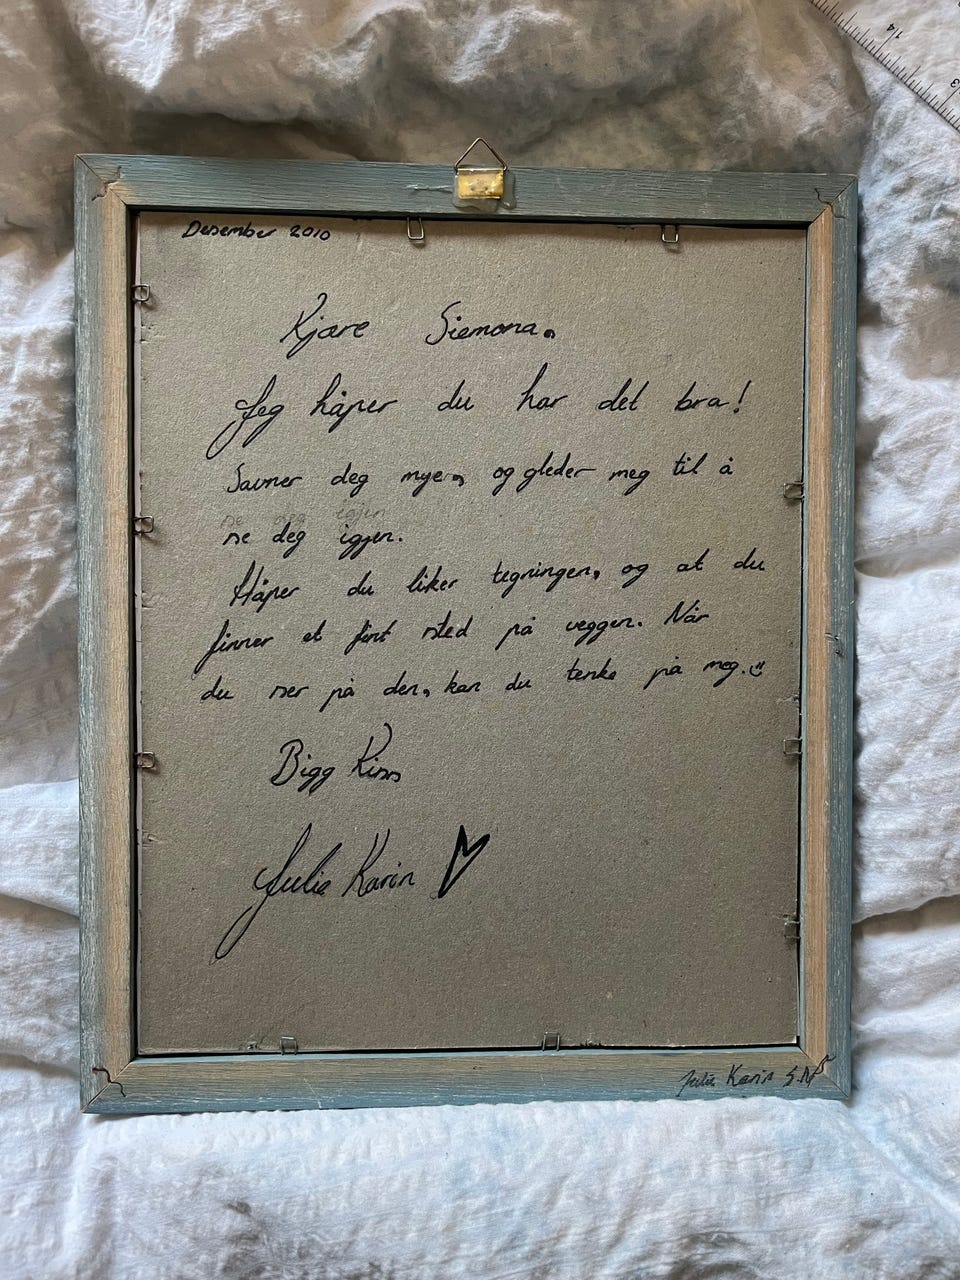 Desember 2010
Kjære Siemona,
Jeg håper du har det bra!
Savner deg mye, og gleder meg til å
se deg igjen
se deg igjen.
Håper du liker tegningen, og at du
finner et fint sted på veggen. Når
du ser på den, kan du tenke på meg.
Bigg Kiss
Julie Karin
Julie Karin S.N
14
3